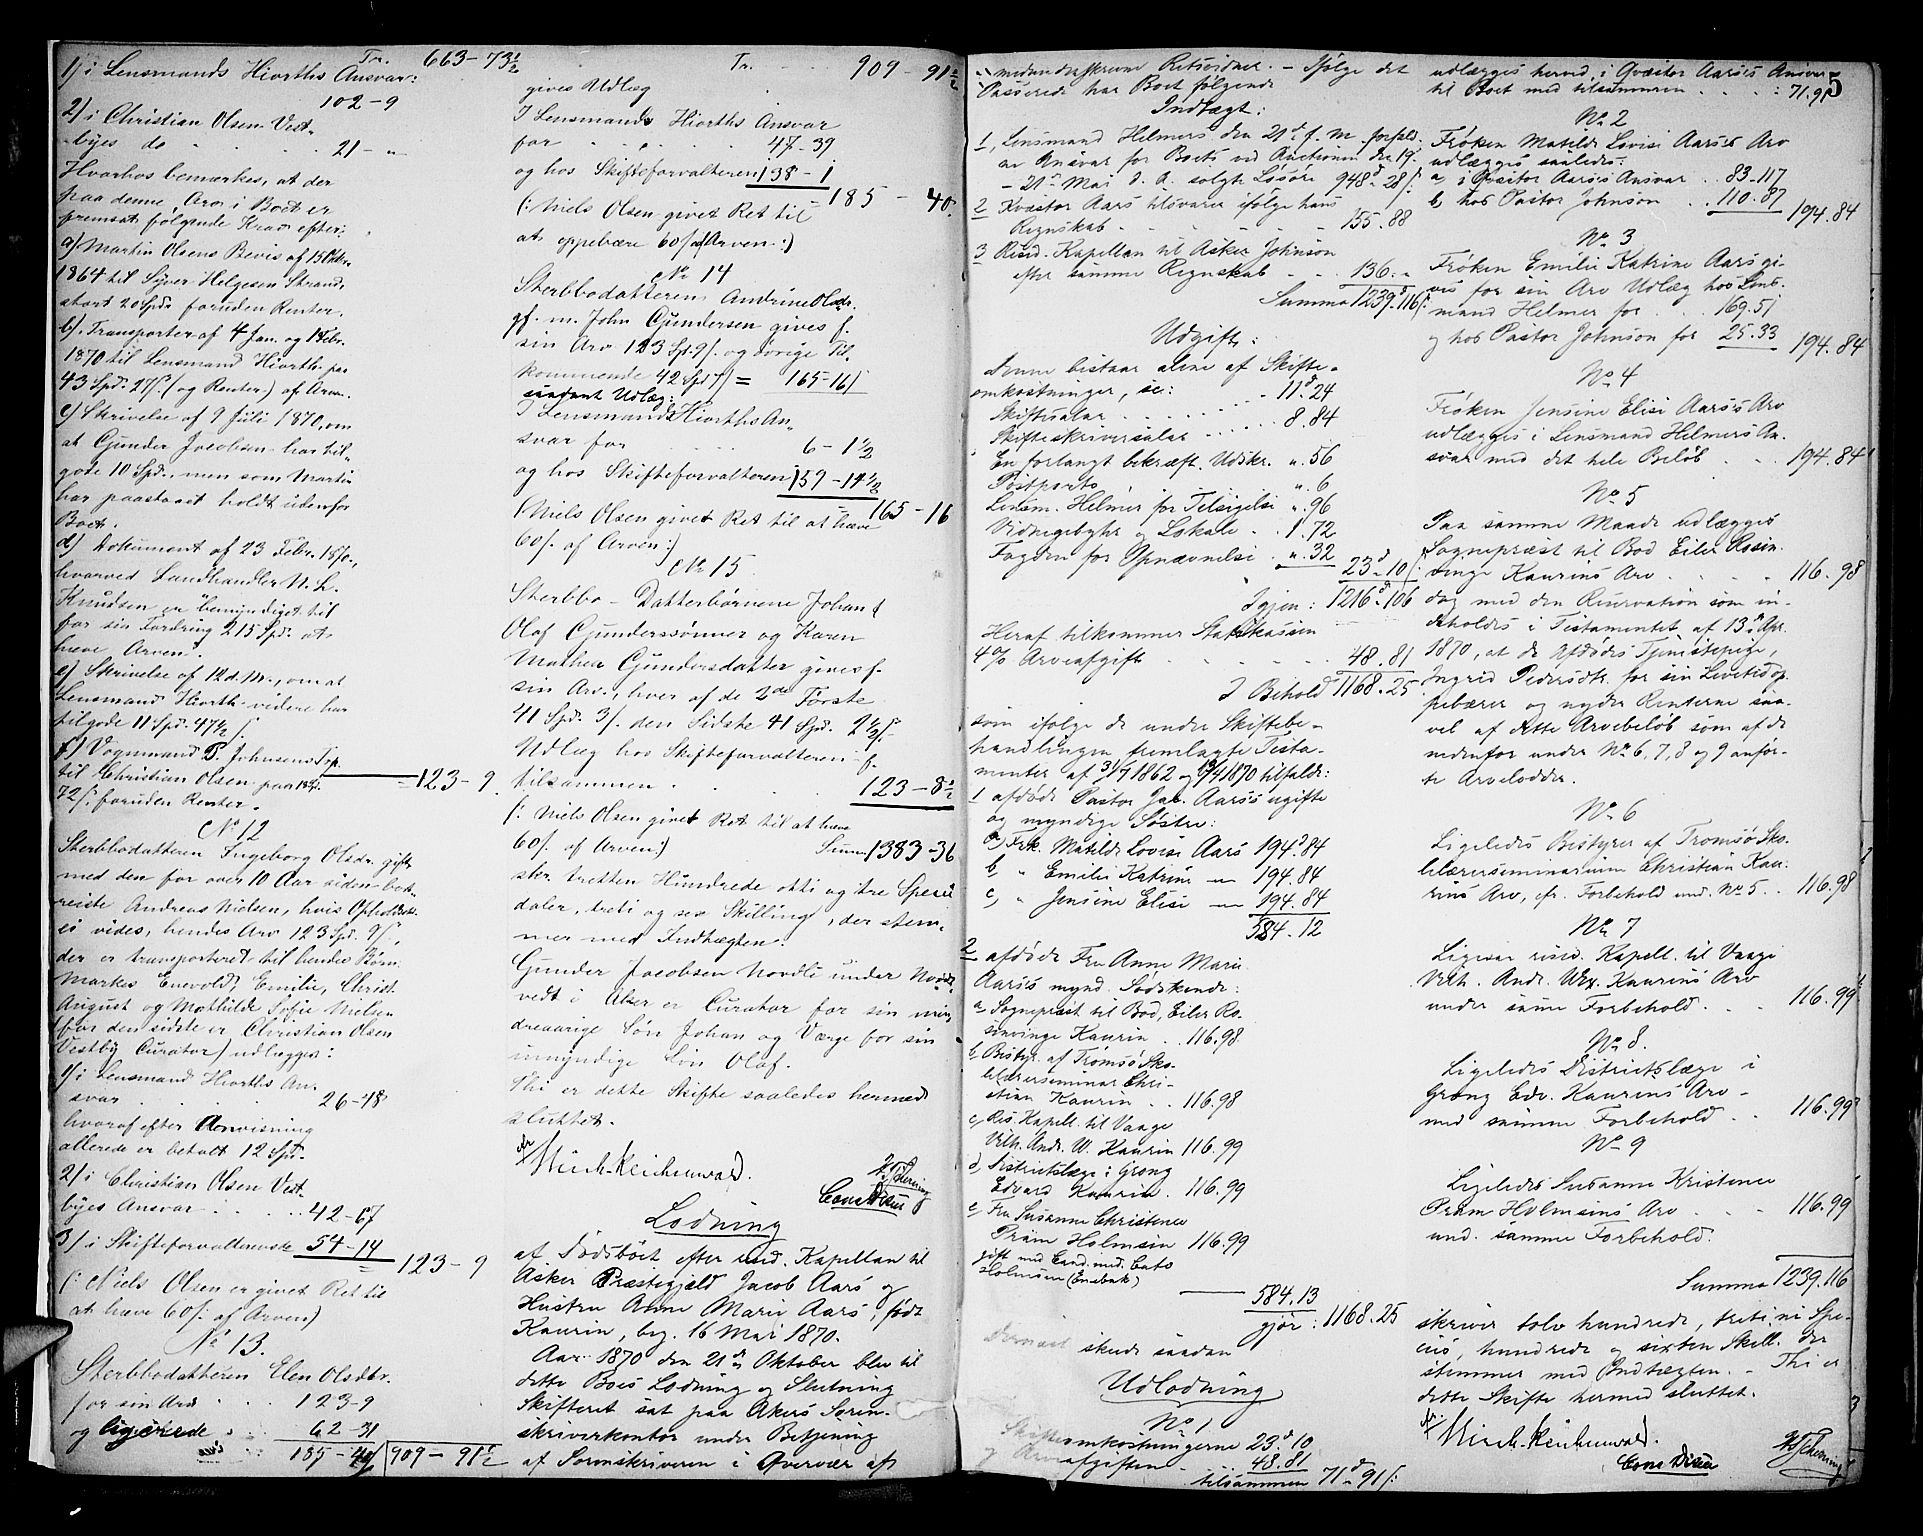 Tr. 663-73½
1) i Lensmands Hiorths Ansvar:
102-9
2) i Christian Olsen Vest-
byes do . . . . 21 - "
Hvorhos bemærkes, at der
paa denne Arv i Boet er
fremsat følgende Krav efter:
a) Martin Olsens Bevis af 15 Oktbr.
1864 til Syver Helgesen Strand,
stort 20 Spd. foruden Renter.
b). Transporter af 4 Jan. og 1 Febr.
1870 til Lensmand Hiorth paa
43 Spd. 27 ß (og Renter) af Arven.
c) Skrivelse af 9 Juli 1870, om
at Gunder Jacobsen har til-
gode 10 Spd., men som Martin
har paastaaet holdt udenfor
Boet.
d) Dokument af 23 Febr. 1870,
hvorved Landhandler N. L.
Knudsen er "bemyndiget til
for sin Fordring 215 Spd. at
hæve Arven".
e) Skrivelse af 12 d. M., om at
Lensmand Hiorth videre har
tilgode 11 Spd. 47½ ß.
f) Vognmand P. Johnsens Trp.
til Christian Olsen paa 13 Spd.
72 ß foruden Renter. = 123-9
No 12
Sterbbodatteren Ingeborg Olsdr. gift
med den for over 10 Aar siden bort-
reiste Andreas Nielsen, hvis Opholdssted
ei vides, hendes Arv 123 Spd. 9 ß,
der er transporteret til hendes Børn
Markus Enevold, Emilie, Christ.
August og Mathilde Sofie Nielsen
(for den sidste er Christian Olsen
Vestby Curator) udlægges:
1) i Lensmand Hiorths An-
svar . . . . 26-48
hvoraf efter Anvisning
allerede er betalt 12 Spd.
2) i Christian Olsen Vest-
byes Ansvar . . . . 42-67
3) i Skifteforvalterens do 54-14
= 123-9
(: Niels Olsen er givet Ret til
at hæve 60 ß. af Arven)
No 13.
Sterbbodatteren Elen Olsdtr.
for sin Arv . . 123-9
og ligerede . . 62-31
185-40 909-91½
Tr. 909-91½
gives Udlæg
I Lensmands Hiorths Ansvar
for . . . . 47-39
og hos Skifteforvalteren 138-1
185-40
(: Niels Olsen givet Ret til
at oppebære 60 ß af Arven:)
No 14
Sterbbodatteren Andrine Olsdr.
gf. m. John Gundersen gives f.
sin Arv 123 Spd. 9 ß. og øvrige Til-
kommende 42 Spd 7 ß = 165-16
saadant Udlæg:
I Lensmands Hiorths An-
svar for . . . . 6-1½
og hos Skifteforvalteren 159-14½
165-16
(Niels Olsen givet Ret til at hæve
60 ß. af Arven:)
No 15
Sterbbo-Datterbørnene Johan &
Olaf Gunderssønner og Karen
Mathea Gundersdatter gives f.
sin Arv, hver af de 2de Første
41 Spd. 3 ß. den Sidste 41 Spd. 2½ ß.
Udlæg hos Skifteforvalteren f.
tilsammen . . . . 123-8½
(: Niels Olsen givet Ret til at hæve
60 ß. af Arven:) Summa 1383-36
skr. tretten Hundrede otti og tre Specie-
daler, treti og sex Skilling, der stem-
mer med Indtægten.
Gunder Jacobsen Nordli under Nord-
vedt i Aker er Curator for sin min-
dreaarige Søn Johan og Værge for sin
umyndige Søn Olaf.
Thi er dette Skifte saaledes hermed
sluttet.
Lodning
af Dødsboet efter resid. Kapellan til
Asker Præstegjeld Jacob Aars og
Hustru Anne Marie Aars, født
Kaurin, beg. 16 Mai 1870.
Aar 1870 den 21de Oktober blev til
dette Boes Lodning og Slutning
Skifteret sat paa Akers Soren-
skriverkontor under Betjening
af Sorenskriveren i Overvær af
5
medunderskrevne Retsvidner. - Ifølge det
Passerede har Boet følgende
Indtægt:
1, Lensmand Helmers den 21de f. M. forfald.
er Ansvar for Boets ved Auctionen den 19.
-21de Mai d. A. solgte Løsøre 948d 28 ß:
2 Kvæstor Aars tilsvarer ifølge hans
Regnskab . . . . 155.88
3 Resid. Kapellan til Asker Johnson
efter samme Regnskab . . 136. "
Summa 1239.116 ß:
Udgift:
Denne bestaar alene af Skifte-
omkostninger, se:
Skiftesalær . . . . 11d 24
Skifteskriversalær . . . . 8.84
En forlangt bekræft. Udskr. ". 56
Postporto . . ". 6
Lensm. Helmer for Tilsigelse ". 96
Vidnegebyhr & Lokale . 1. 72
Fogden for Opnævnelse . ". 32
23d 10 ß:
Igjen: 1216d 106
Heraf tilkommer Statskassen
4% Arveafgift . . . . 48.81
I Behold 1168.25
som ifølge de under Skiftebe-
handlingen fremlagte Testa-
menter af 31/7 1862 og 13/4 1870 tilfalde:
1 afdøde Pastor Jac. Aars's ugifte
og myndige Søstre:
a) Frk. Matilde Lovise Aars 194d 84
b " Emilie Katrine — 194.84
c, " Jensine Elise — 194.84
584.12
2 afdøde Fru Anne Marie
Aars's mynd. Sødskende:
a, Sognepræst til Bod, Eiler Ro-
sinvinge Kaurin . . 116.98
b, Bestyr. af Tromsø Sko-
lelærerseminar Chri-
stian Kaurin . . 116.98
c, Res. Kapell. til Vaage
Vilh. Andr. W. Kaurin 116.99
d, Distriktslæge i Grong
Edvard Kaurin . 116.99
e, Fru Susanne Christence
Pram Holmsen 116.99
gift med Cand. med. Cato
Holmsen (Enebak)
584.13
gjør: 1168.25
Dernæst skede saadan
Udlodning
No 1
Skifteomkostningerne 23d 10
og Arveafgiften . . 48.81
tilsammen 71d 91 ß:
udlægges herved i Qvæstor Aars's Ansvar
til Boet med tilsammen . . . : 71.91
No 2
Frøken Matilde Lovise Aars's Arv
udlægges saaledes:
a, i Qvæstor Aars's Ansvar . . 83.117
b, hos Pastor Johnson . . 110.87
194.84
No 3
Frøken Emilie Katrine Aars gi-
ves for sin Arv Udlæg hos Lens-
mand Helmer for . . 169.51
og hos Pastor Johnson for 25.33
194.84
No 4
Frøken Jensine Elise Aars's Arv
udlægges i Lensmand Helmers An-
svar med det hele Beløb . . 194.84
No 5
Paa samme Maade udlægges
Sognepræst til Bod Eiler Rosen-
vinge Kaurins Arv . . . . 116.98
dog med den Reservation som in-
deholdes i Testamentet af 13de Apr.
1870, at de Afdødes Tjenestepige,
Ingrid Pedersdtr. for sin Levetid op-
pebærer og nyder Renterne saa-
vel af dette Arvebeløb som af de
nedenfor under No 6, 7, 8 og 9 anfør-
te Arvelodder.
No 6
Ligeledes Bestyrer af Tromsø Sko-
lelærerseminarium Christian Kau-
rins Arv, efr. Forbehold und. No 5 . . 116.98
No 7
Ligesaa resid. Kapell. til Vaage
Vilh. Andr. Wex. Kaurins Arv
under samme Forbehold . . . 116.99
No 8.
Ligeledes Districtslæge i
Grong Edv. Kaurins Arv -
med samme Forbehold . . 116.99
No 9
Ligeledes Susanne Kristence
Pram Holmsens Arv . . . 116.99
und. samme Forbehold.
Summa 1239.116
skriver tolv hundrede, treti ni Spe-
cies, hundrede og sexten Skill. der
stemmer med Indtægten. - Thi er
dette Skifte hermed sluttet.